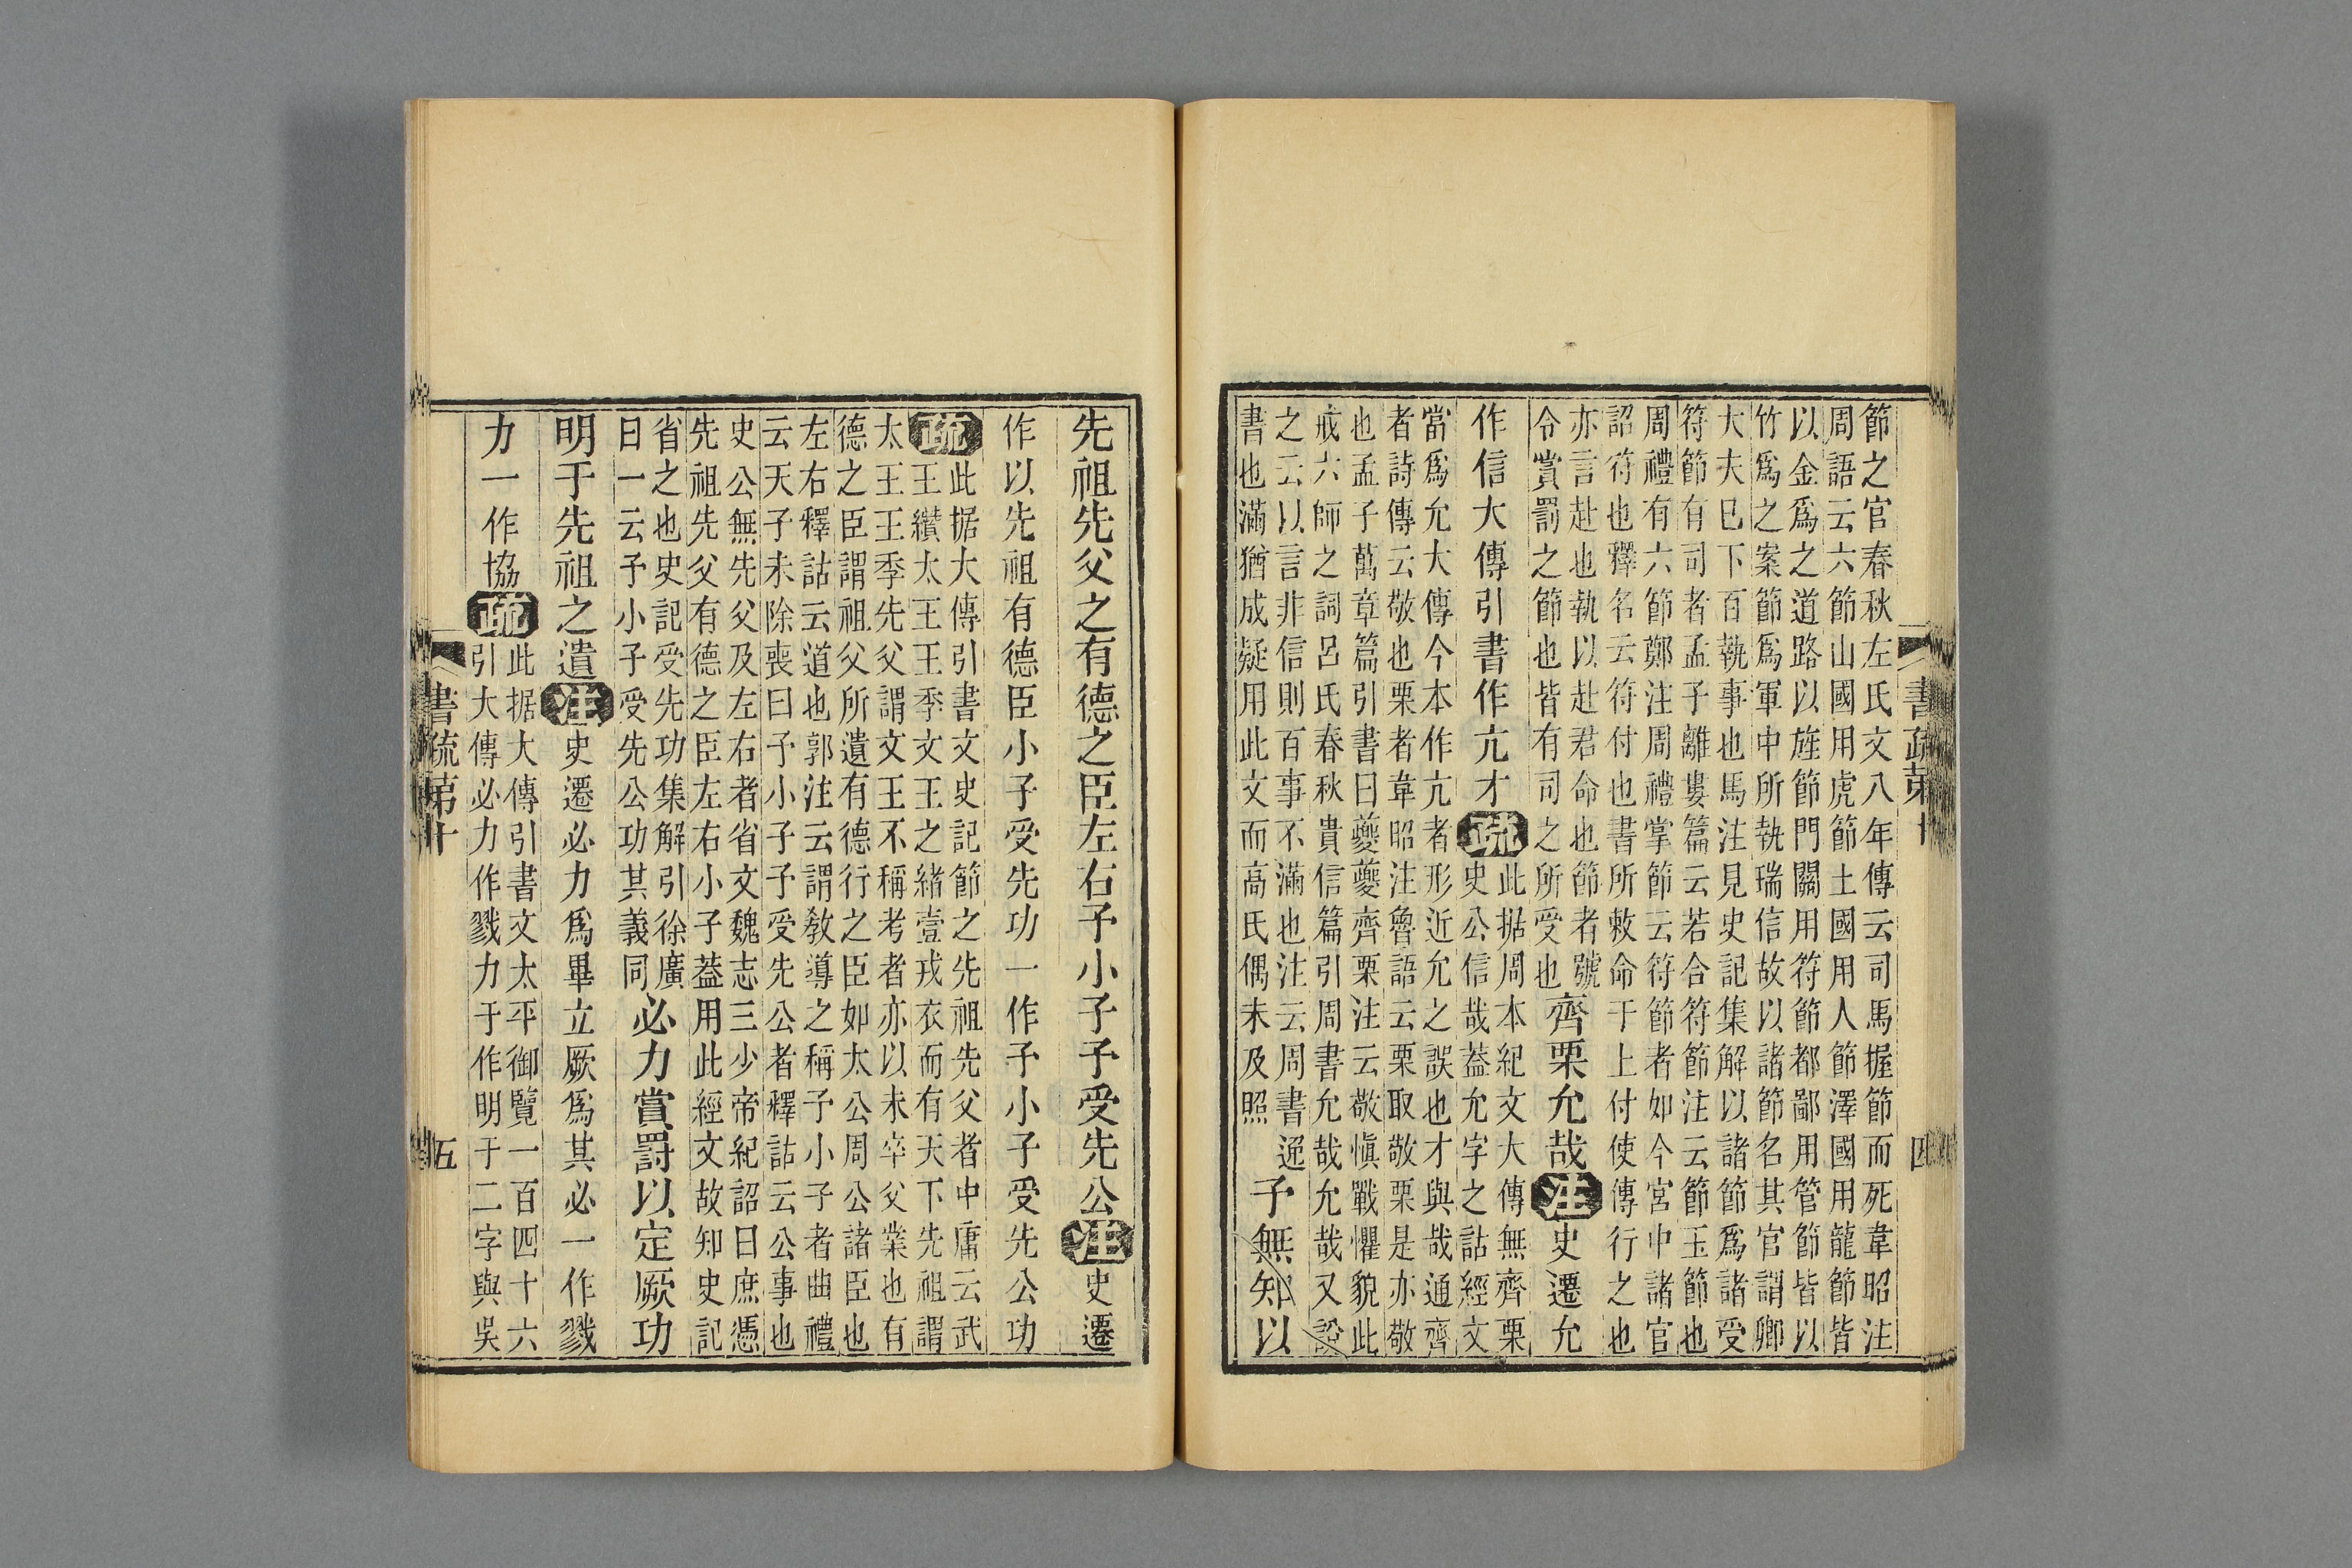 節之官春秋左氏文八年傳云司馬握節而死韋昭注
周語云六節山國用虎節土國用人節澤國用龍節皆
以金爲之道路以旌節門關用符節都鄙用管節皆以
竹爲之案節爲軍中所執瑞信故以諸節名其官謂卿
大夫巳下百執事也馬注見史記集解以諸節爲諸受
符節有司者孟子離婁篇云若合符節注云節玉節也
周禮有六節鄭注周禮掌節云符節者如今宮中諸官
詔符也釋名云符付也書所敕命于上付使傳行之也
亦言赴也執以赴君命也節者號
令賞罰之節也皆有司之所受也
齊栗允哉注史遷允
作信大傳引書作亢才疏
此據周本紀文大傳無齊栗
史公信哉葢允字之詁經文
當爲允大傳今本作亢者形近允之誤也才與哉通齊
者詩傳云敬也栗者韋昭注魯語云栗取敬栗是亦敬
也孟子萬章篇引書曰夔夔齊栗注云敬愼戰懼貌此
戒六師之詞呂氏春秋貴信篇引周書允哉允哉又說
之云以言非信則百事不滿也注云周書逸
書也滿猶成疑用此文而高氏偶未及照
予無知以
書疏弟十
四
先祖先父之有德之臣左右予小子予受先公注史遷
作以先祖有德臣小子受先功一作予小子受先公功
疏此据大傳引書文史記節之先祖先父者中庸云武
王纘太王王季文王之緒壹戎衣而有天下先祖謂
太王王季先父謂文王不稱考者亦以未卒父業也有
德之臣謂祖父所遺有德行之臣如太公周公諸臣也
左右釋詁云道也郭注云謂教導之稱予小子者曲禮
云天子未除喪曰予小子予受先公者釋詁云公事也
史公無先父及左右者省文魏志三少帝紀詔曰庶憑
先祖先父有德之臣左右小子葢用此經文故知史記
省之也史記受先功集解引徐廣
曰一云予小子受先公功其義同
必力賞罰以定厥功
明于先祖之遺注史遷必力爲畢立厥爲其必一作戮
力一作協疏
此据大傳引書文太平御覽一百四十六
引大傳必力作戮力于作明于二字與吳
書疏弟十
五